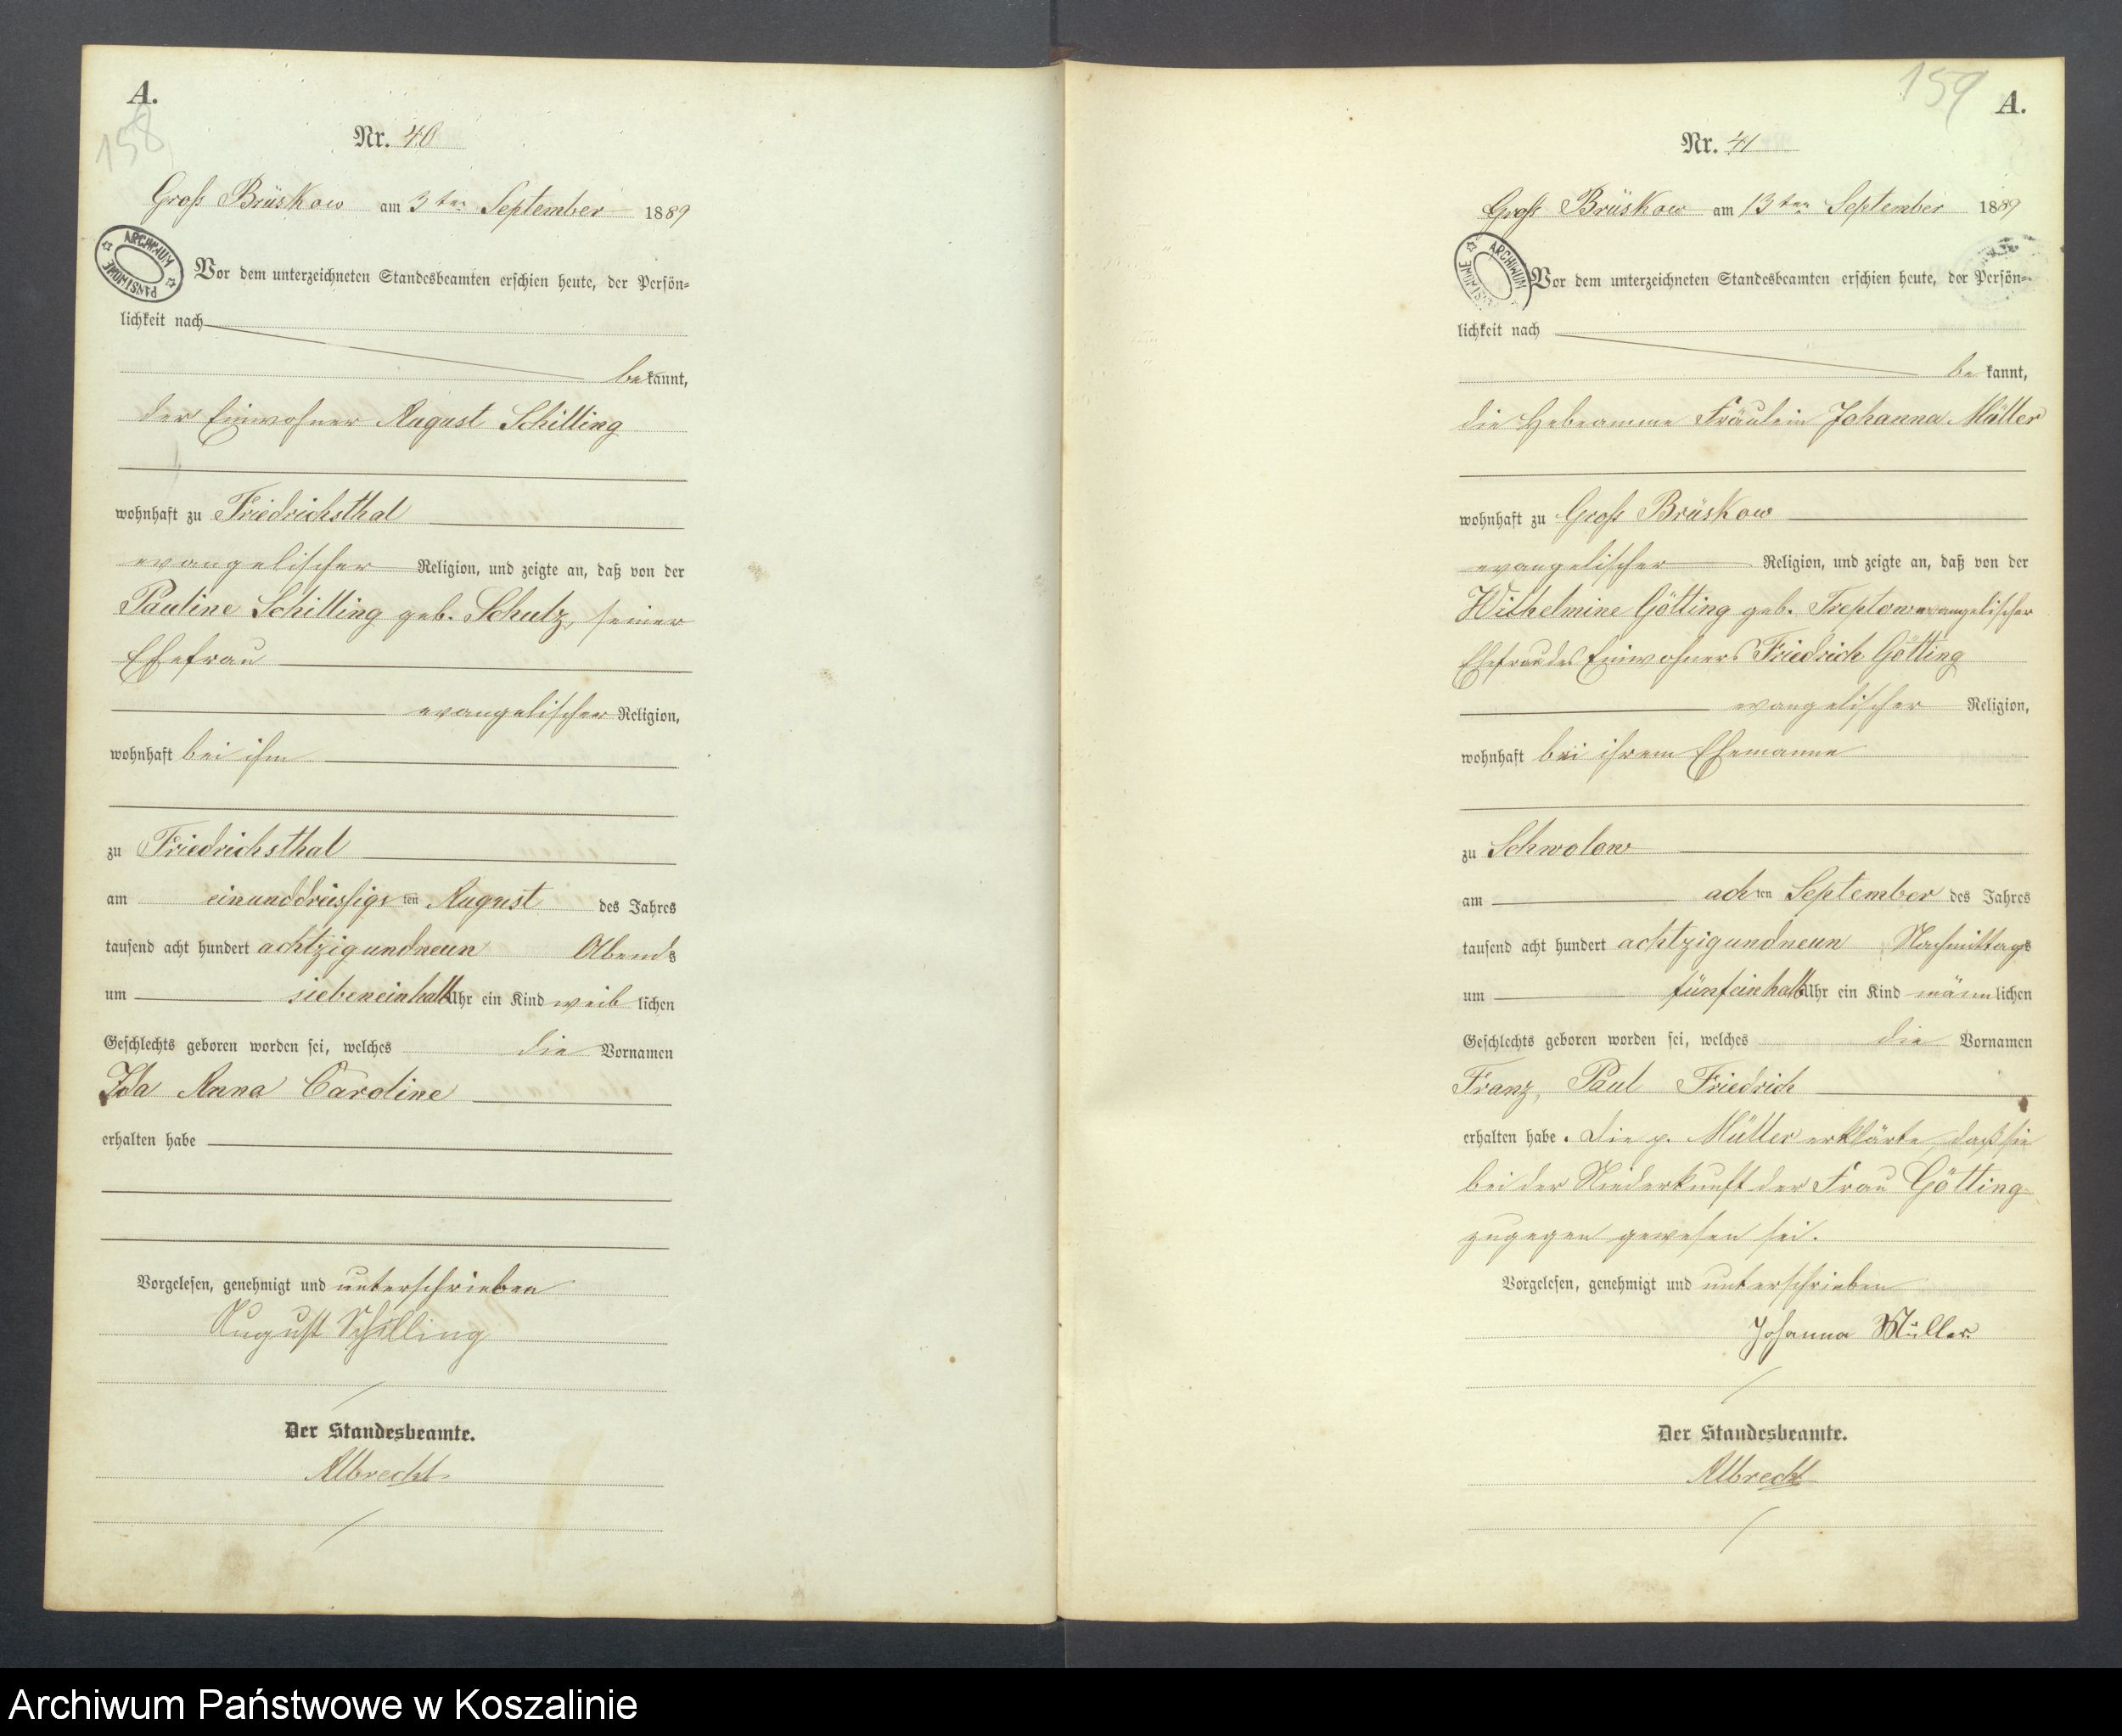 A.
158
Nr. 40
Groß Brüskow am 3ten September 1889
ARCHIWUM PAŃSTWOWE
Vor dem unterzeichneten Standesbeamten erschien heute, der Persön=
lichkeit nach
bekannt,
der Einwohner August Schilling
wohnhaft zu Friedrichsthal
evangelischer Religion, und zeigte an, daß von der
Pauline Schilling geb. Schulz, seiner
Ehefrau
evangelischer Religion,
wohnhaft bei ihm
zu Friedrichsthal
am einunddreissigsten August des Jahres
tausend acht hundert achtzigundneun Abends
um siebeneinhalb Uhr ein Kind weiblichen
Geschlechts geboren worden sei, welches die Vornamen
Ida Anna Caroline
erhalten habe
Vorgelesen, genehmigt und unterschrieben
August Schilling
Der Standesbeamte.
Albrecht
159
A.
Nr. 41
Groß Brüskow am 13ten September 1889
ARCHIWUM PAŃSTWOWE
Vor dem unterzeichneten Standesbeamten erschien heute, der Persön=
lichkeit nach
bekannt,
die Hebeamme Fräulein Johanna Müller
wohnhaft zu Groß Brüskow
evangelischer Religion, und zeigte an, daß von der
Wilhelmine Götting geb. Treptow evangelischer
Ehefrau des Einwohners Friedrich Götting
evangelischer Religion,
wohnhaft bei ihrem Ehemanne
zu Schwolow
am achten September des Jahres
tausend acht hundert achtzigundneun Nachmittags
um fünfeinhalb Uhr ein Kind männlichen
Geschlechts geboren worden sei, welches die Vornamen
Franz, Paul Friedrich
erhalten habe. Die p. Müller erklärte, daß sie
bei der Niederkunft der Frau Götting
zugegen gewesen sei.
Vorgelesen, genehmigt und unterschrieben
Johanna Müller.
Der Standesbeamte.
Albrecht
Archiwum Państwowe w Koszalinie